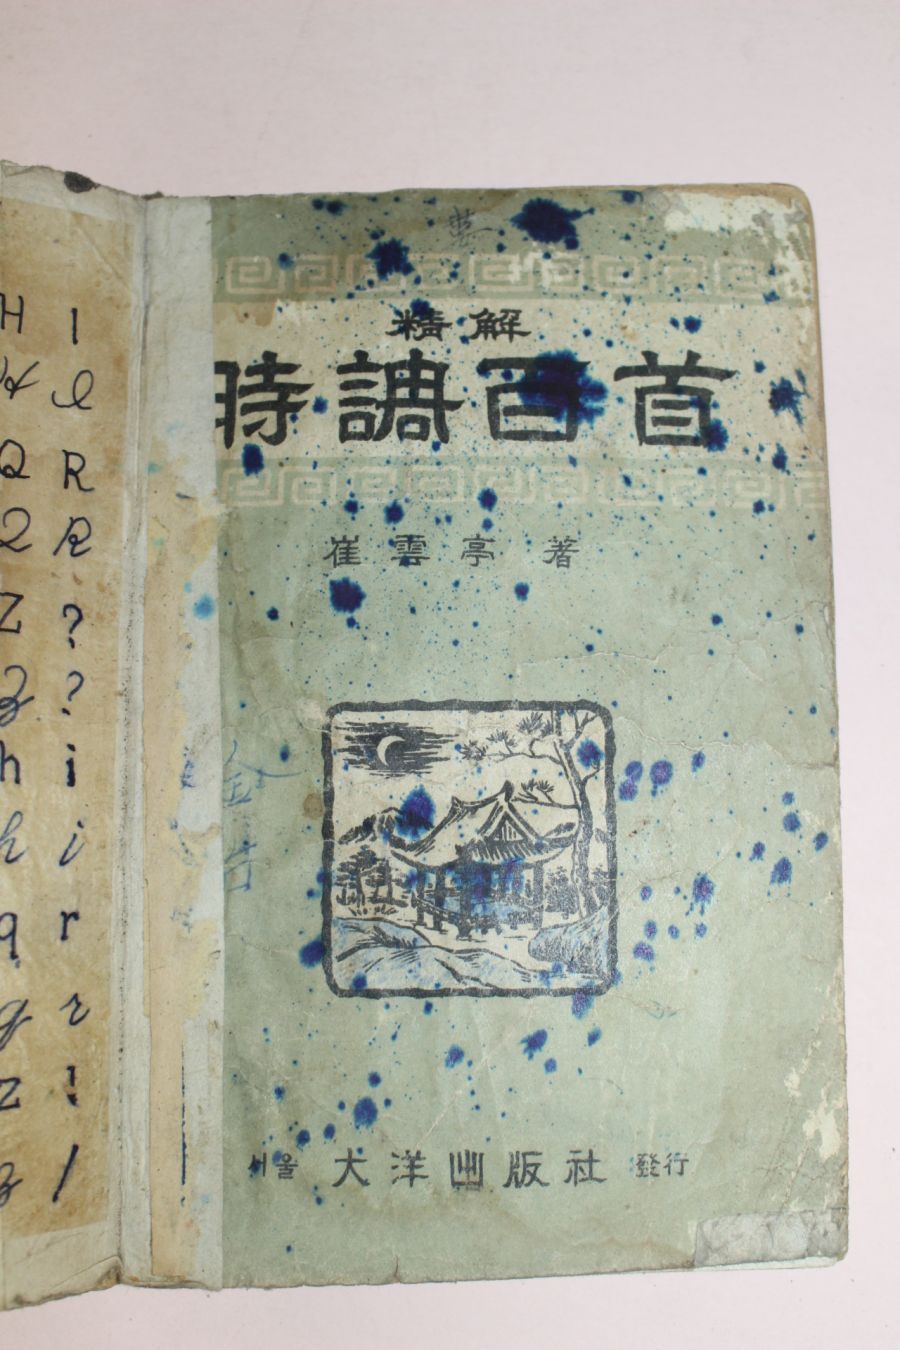 H I
H l
Q R
Q R
Z ?
Z ?
h i
h i
q r
q r
z !
z !
精解
時調百首
崔雲亭 著
金
서울 大洋出版社 發行